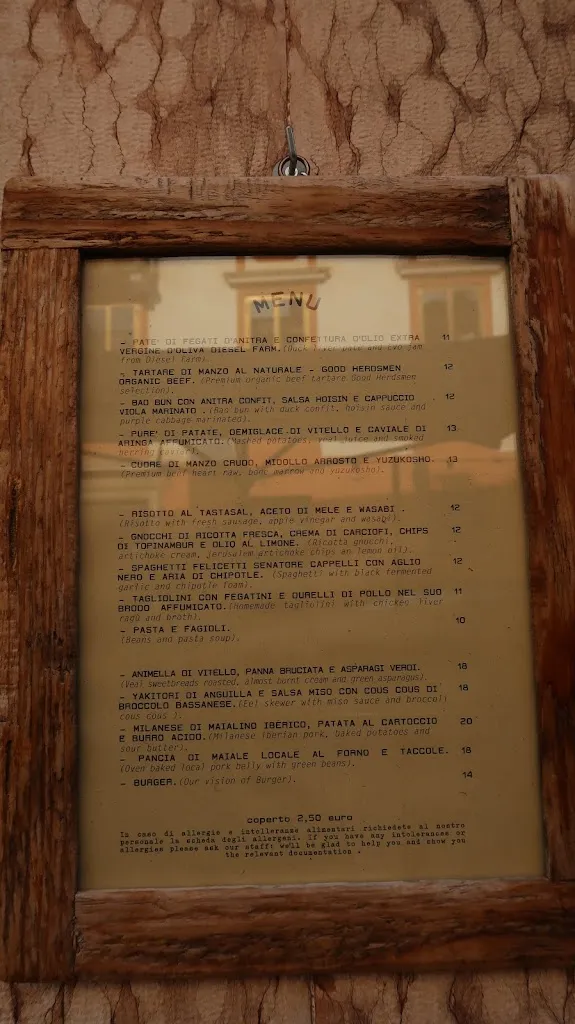 MENU
- PATE' DI FEGATI D'ANITRA E CONFETTURA D'OLIO EXTRA 11
VERGINE D'OLIVA DIESEL FARM.(Duck liver paté and Evo jam
from Diesel Farm).
- TARTARE DI MANZO AL NATURALE - GOOD HERDSMEN 12
ORGANIC BEEF. (Premium organic beef tartare Good Herdsmen
selection).
- BAO BUN CON ANITRA CONFIT, SALSA HOISIN E CAPPUCCIO 12
VIOLA MARINATO .(Bao bun with duck confit, hoisin sauce and
purple cabbage marinated).
- PURE' DI PATATE, DEMIGLACE DI VITELLO E CAVIALE DI 13
ARINGA AFFUMICATO.(Mashed potatoes, veal juice and smoked
herring caviar).
- CUORE DI MANZO CRUDO, MIDOLLO ARROSTO E YUZUKOSHO. 13
(Premium beef heart raw, bone marrow and yuzukosho).
- RISOTTO AL TASTASAL, ACETO DI MELE E WASABI . 12
(Risotto with fresh sausage, apple vinegar and wasabi).
- GNOCCHI DI RICOTTA FRESCA, CREMA DI CARCIOFI, CHIPS 12
DI TOPINAMBUR E OLIO AL LIMONE. (Ricotta gnocchi,
artichoke cream, jerusalem artichoke chips an lemon oil).
- SPAGHETTI FELICETTI SENATORE CAPPELLI CON AGLIO 12
NERO E ARIA DI CHIPOTLE. (Spaghetti with black fermented
garlic and chipotle foam).
- TAGLIOLINI CON FEGATINI E DURELLI DI POLLO NEL SUO 11
BRODO AFFUMICATO.(Homemade tagliolini with chicken liver
ragù and broth).
- PASTA E FAGIOLI. 10
(Beans and pasta soup).
- ANIMELLA DI VITELLO, PANNA BRUCIATA E ASPARAGI VERDI. 18
(Veal sweetbreads roasted, almost burnt cream and green asparagus).
- YAKITORI DI ANGUILLA E SALSA MISO CON COUS COUS DI 18
BROCCOLO BASSANESE.(Eel skewer with miso sauce and broccoli
cous cous ).
- MILANESE DI MAIALINO IBERICO, PATATA AL CARTOCCIO 20
E BURRO ACIDO.(Milanese iberian pork, baked potatoes and
sour butter).
- PANCIA DI MAIALE LOCALE AL FORNO E TACCOLE. 18
(Oven baked local pork belly with green beans).
- BURGER.(Our vision of Burger). 14
coperto 2,50 euro
In caso di allergie e intolleranze alimentari richiedete al nostro
personale la scheda degli allergeni. If you have any intolerances or
allergies please ask our staff: we'll be glad to help you and show you
the relevant documentation .